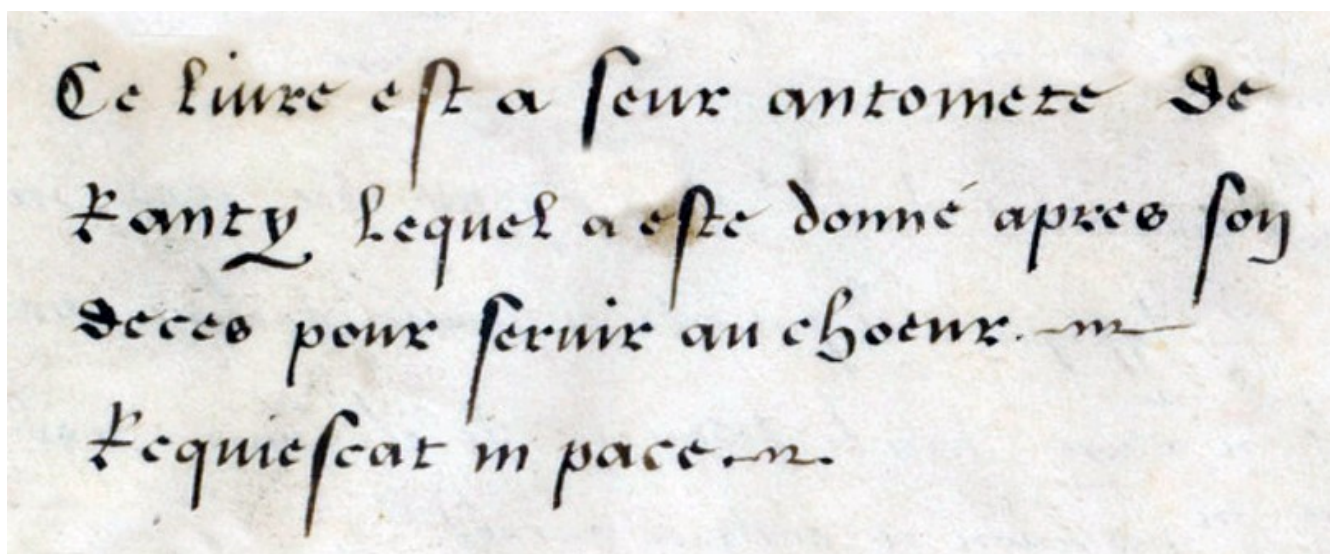 Ce livre est a seur antoinete de
Ranty lequel a este donné apres son
deces pour servir au choeur.
Requiescat in pace.